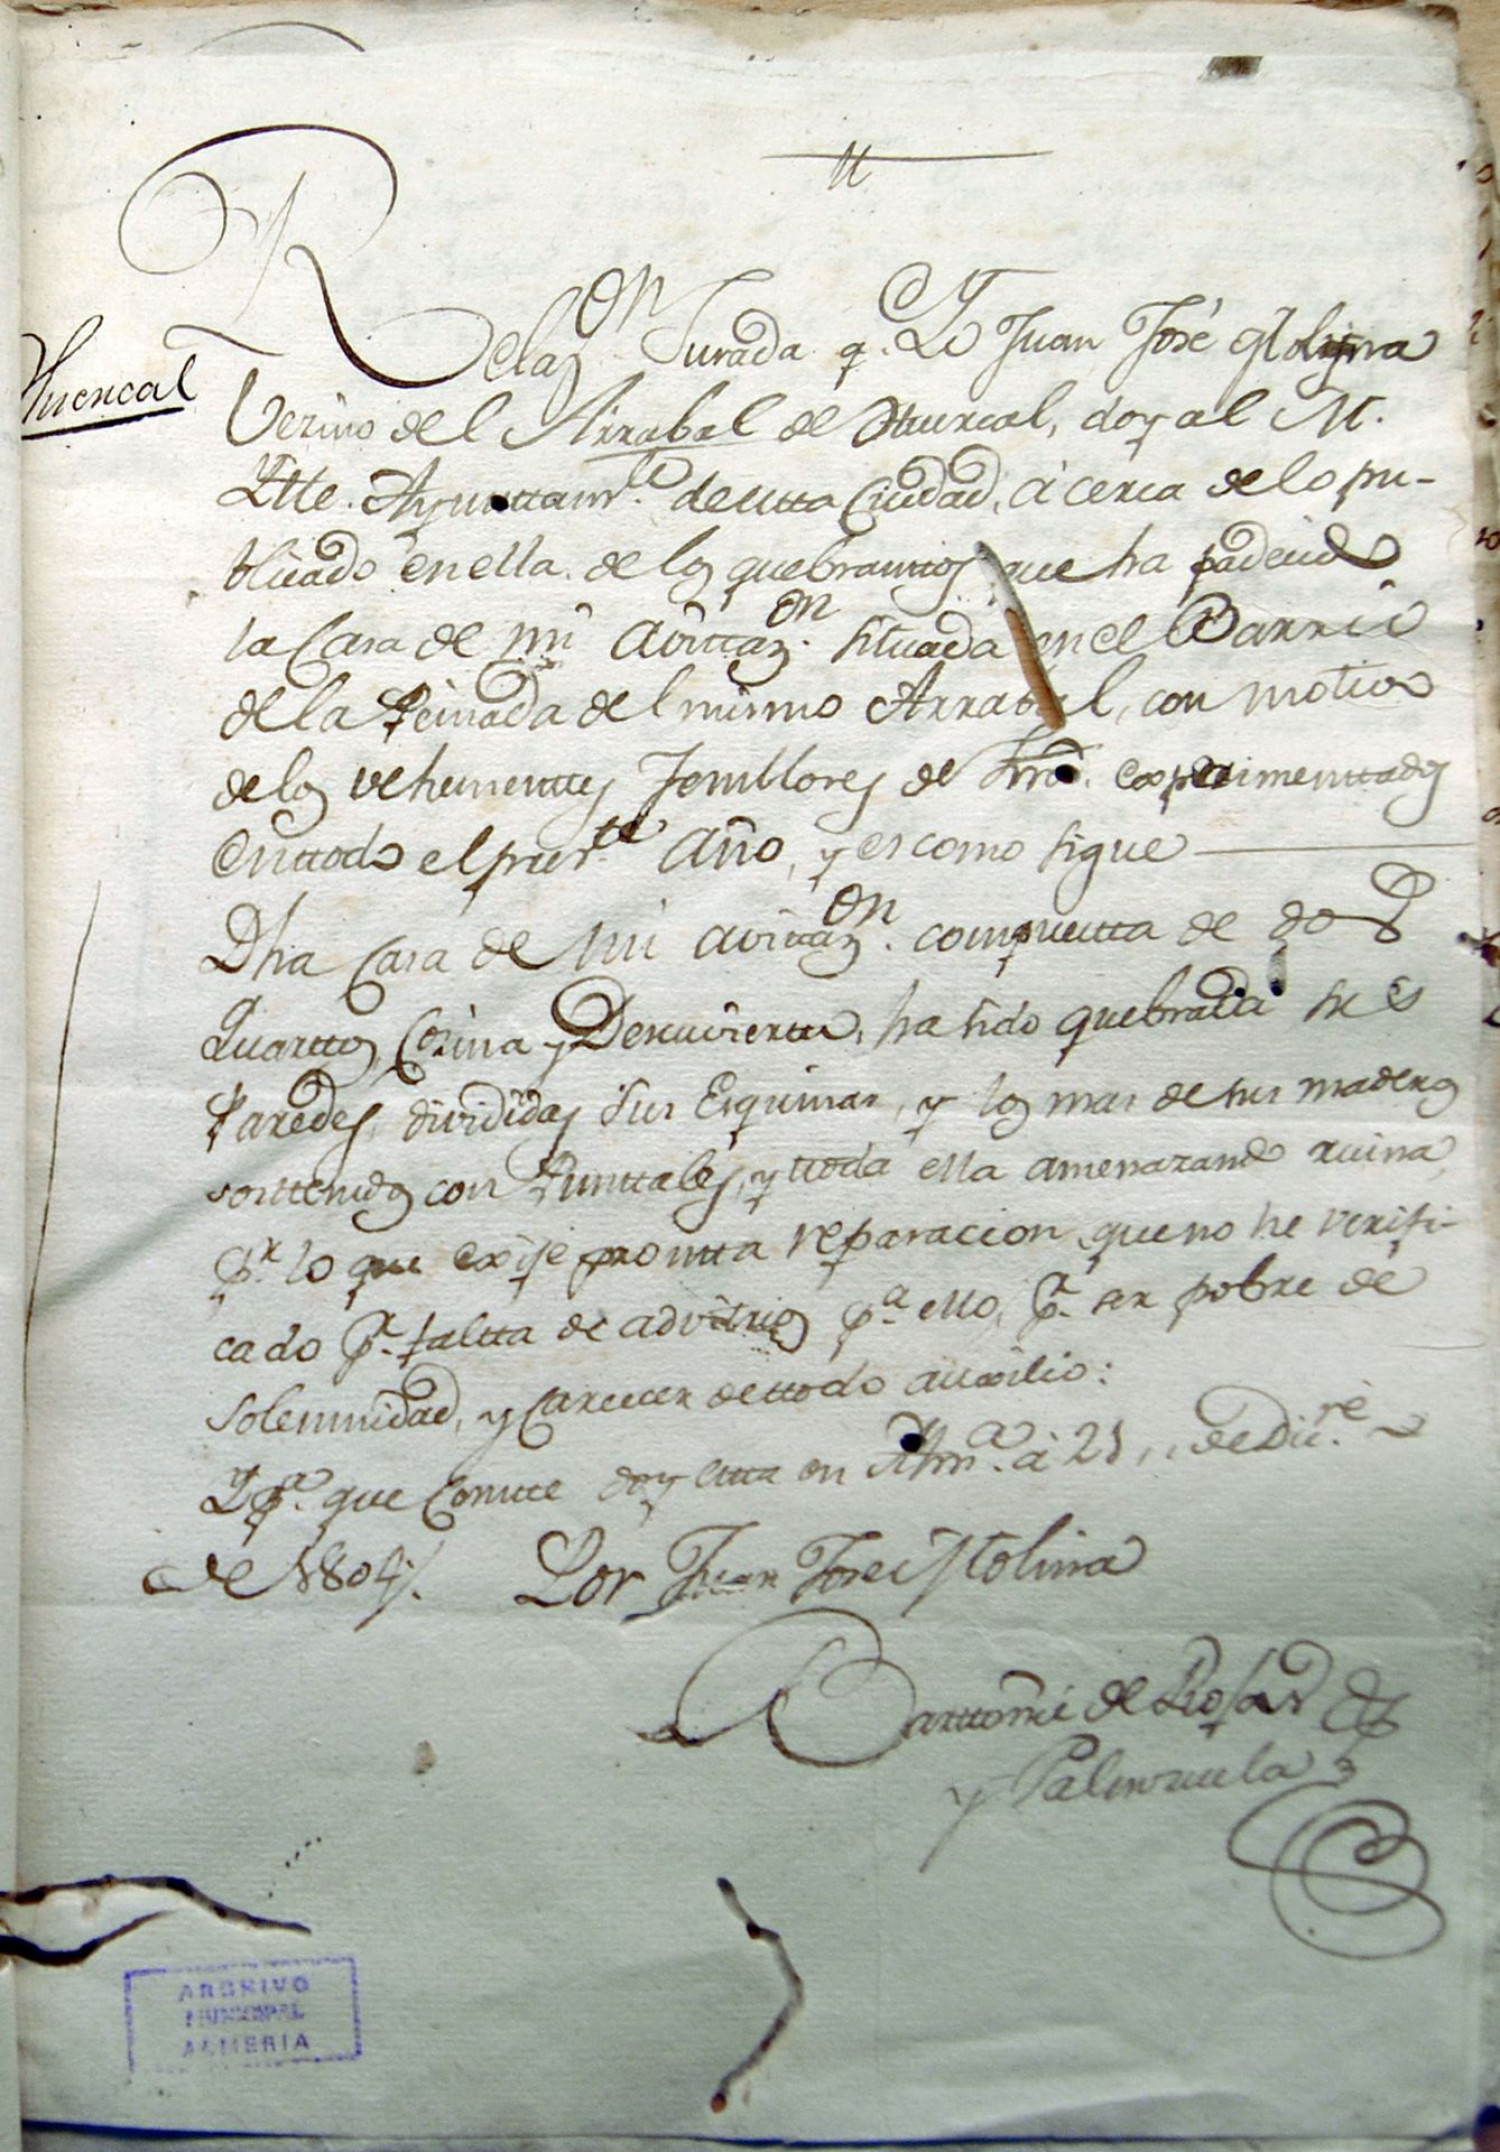 Huercal
Relaz.on Jurada q. Yo Juan José Molina
Vezino del Arrabal de Huercal, doy al M.
Ytte. Ayunttam.to de estta Ciudad, à cerca de lo pu-
blicado en ella de los quebranttos que ha padecido
la Casa de mi avittaz.on situada en el Barrio
de la del mismo Arrabal, con motivo
de los vehementtes Temblores de tierra experimenttados
en ttodo el pres.te año, y es como sigue
Dha Casa de mi avittaz.on compuestta de dos
Quarttos, Cozina y Descuviertto, ha sido quebrada sus
Paredes, divididas sus Esquinas, y los mas de sus maderos
sosttenidos con Punttales, y ttoda ella amenazando ruina,
p.r lo que exije prontta reparacion, que no he verifi-
cado p.r faltta de advitrios p.a ello, p.r ser pobre de
solemnidad, y Carecer de ttodo auxilio:
Y p.a que Conste doy estta en Alm.a à 21,, de Dic.re
de 1804.
Por Juan Jose Molina
Barttomé de Rosas
y Palenzuela
ARCHIVO
MUNICIPAL
ALMERIA